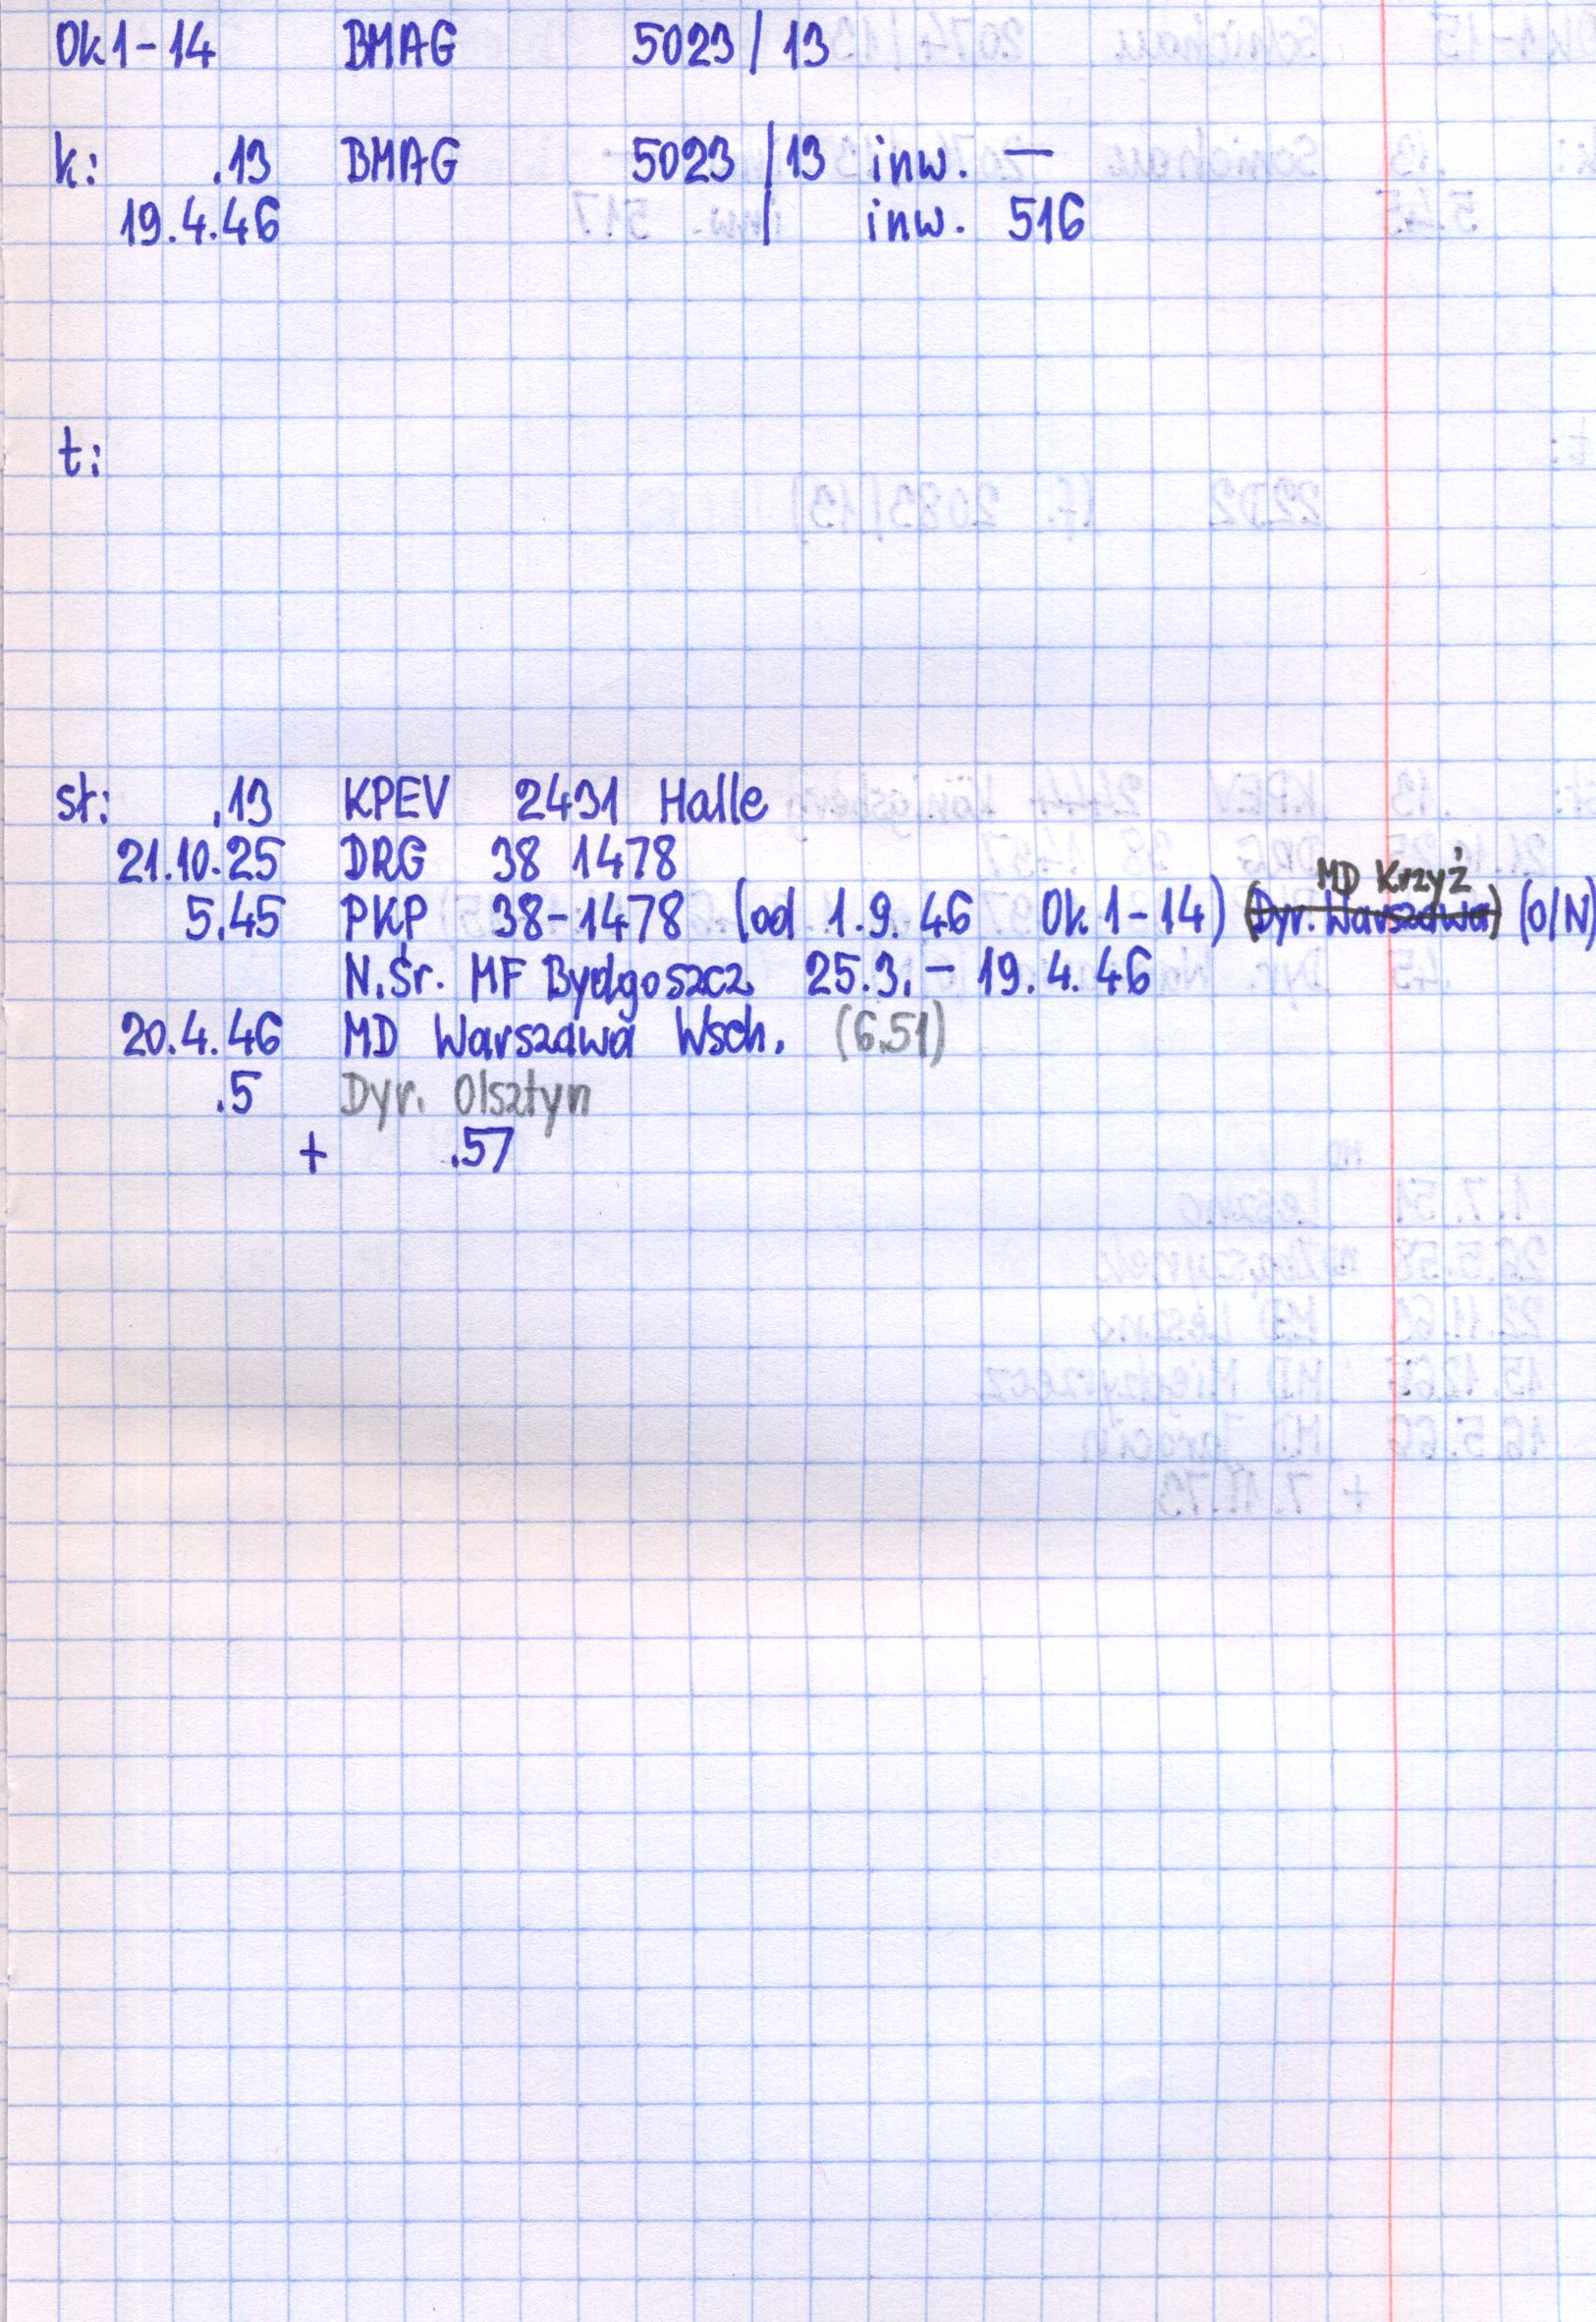 Ok1-14 BMAG 5023/13
k: .13 BMAG 5023/13 inw. —
19.4.46 / inw. 516
t:
st: .13 KPEV 2431 Halle
21.10.25 DRG 38 1478
MD Krzyż
5.45 PKP 38-1478 (od 1.9.46 Ok1-14) (Dyr. Warszawa) (O/N)
N.Śr. MF Bydgoszcz 25.3.- 19.4.46
20.4.46 MD Warszawa Wsch. (6.51)
.5 Dyr. Olsztyn
+ .57